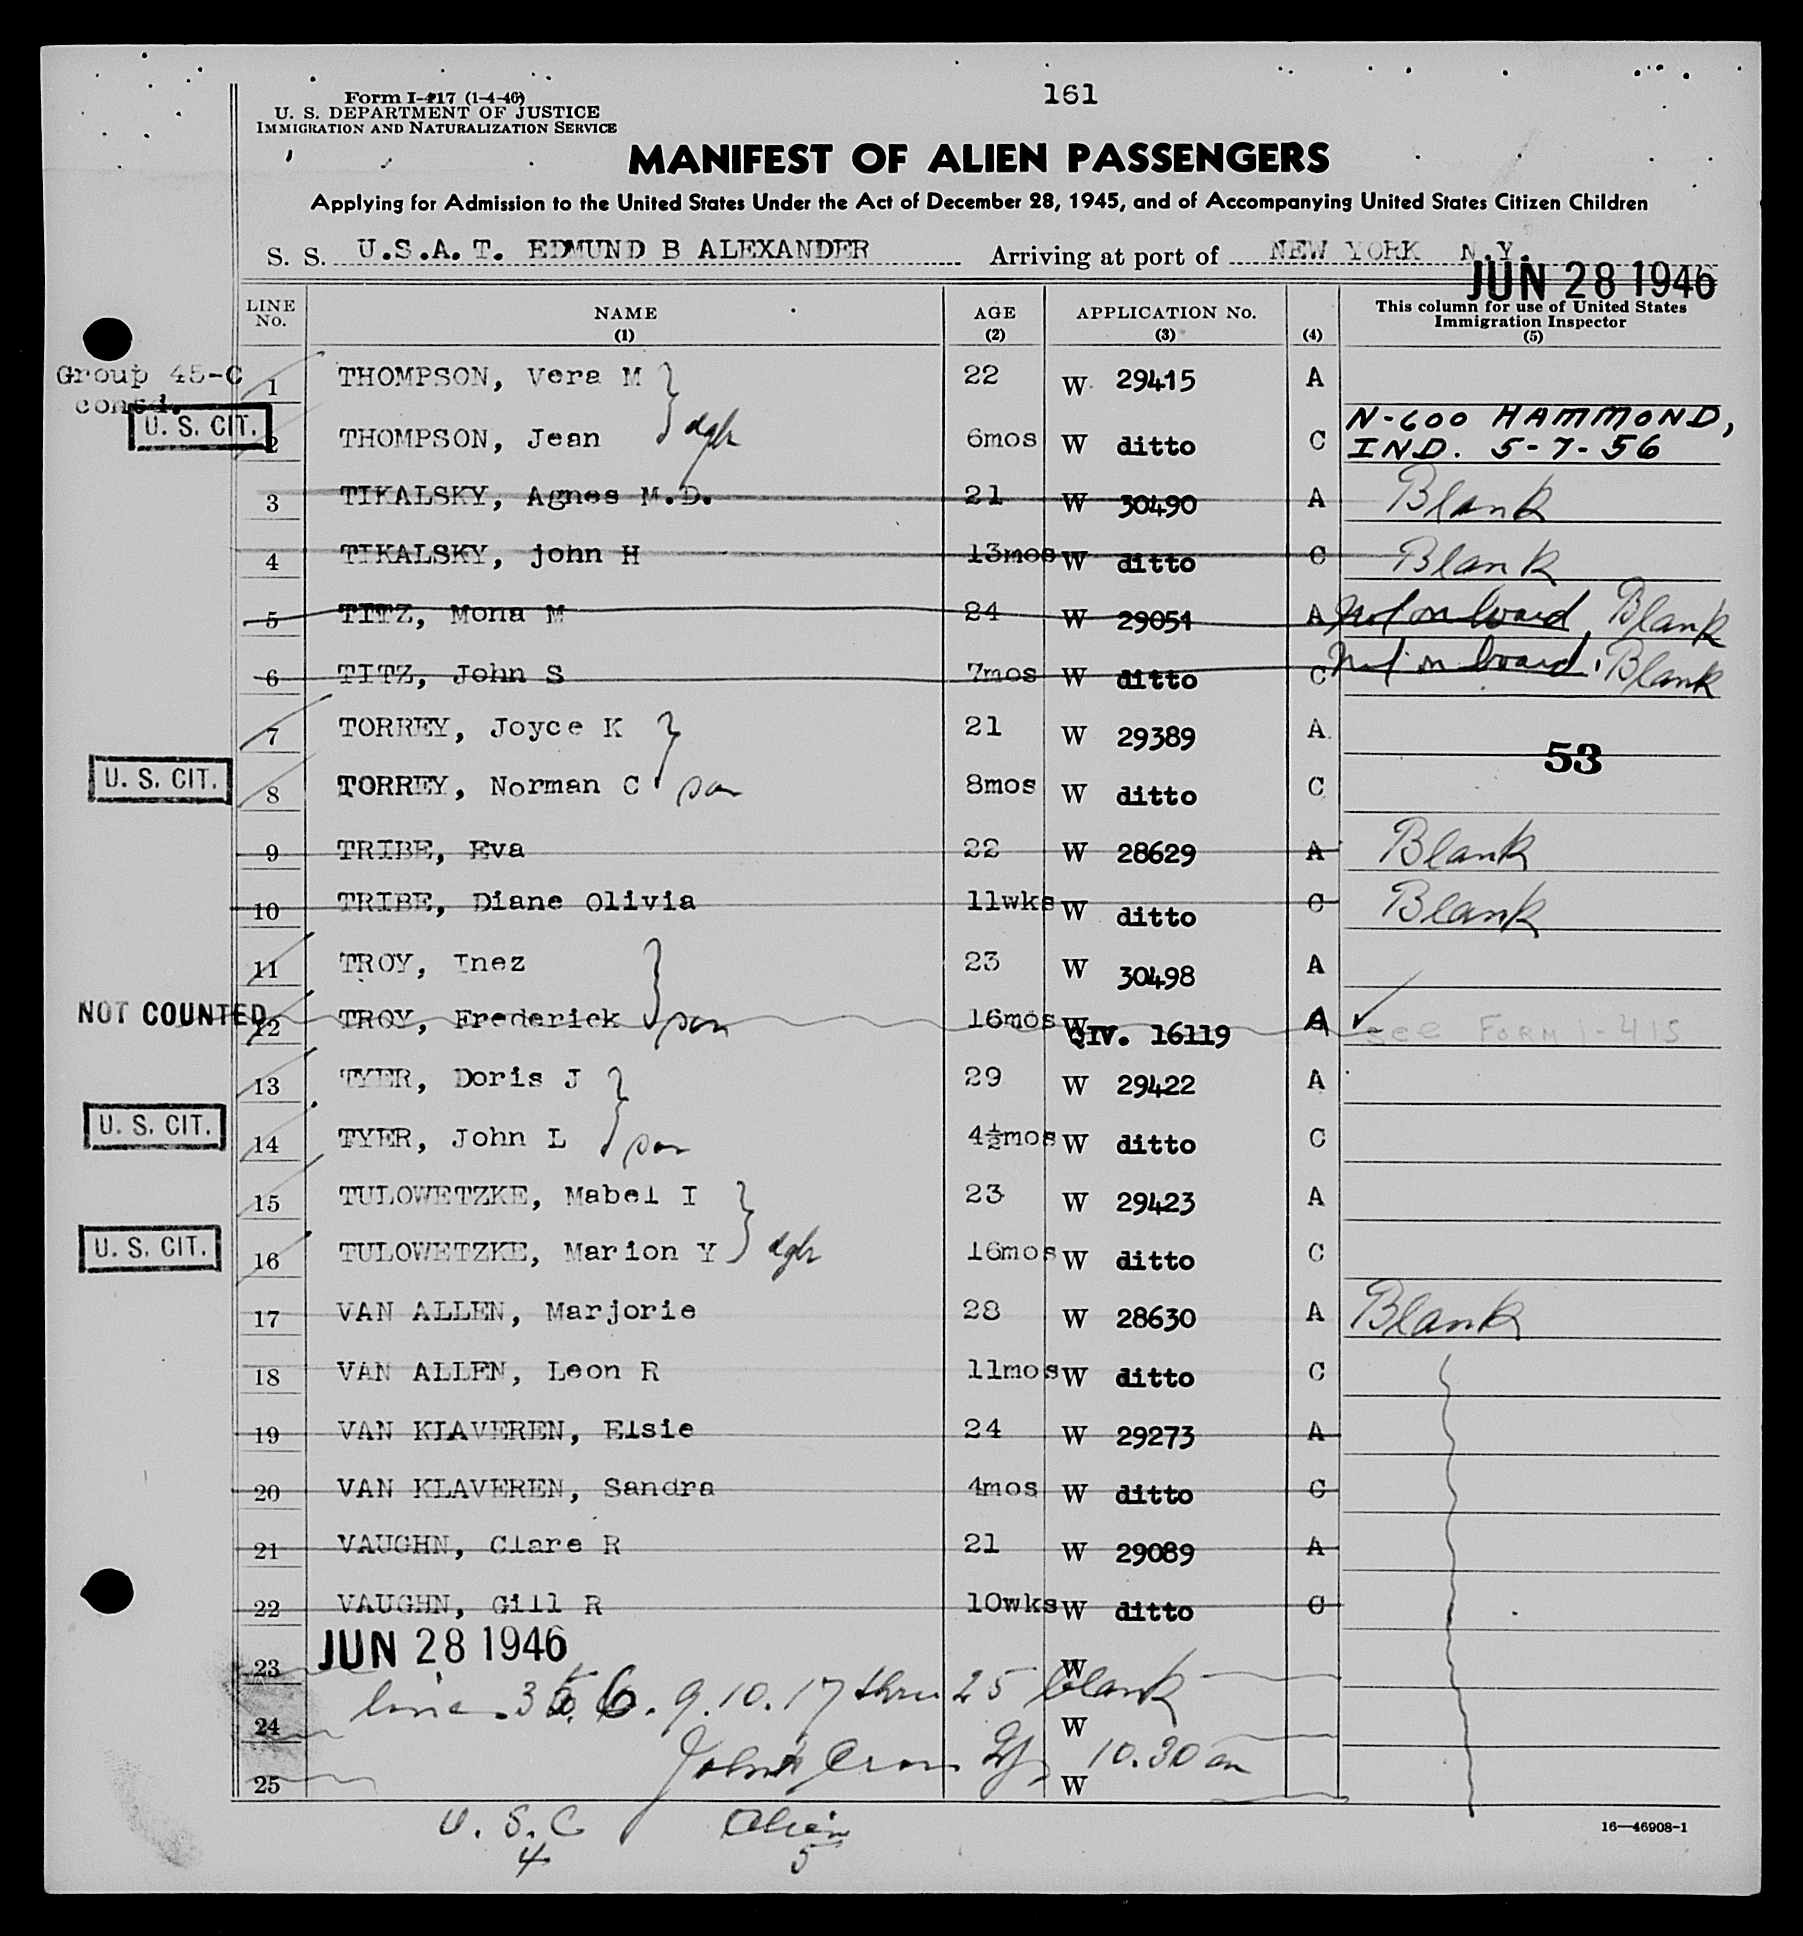 Form I-417 (1-4-46)
U. S. DEPARTMENT OF JUSTICE
IMMIGRATION AND NATURALIZATION SERVICE
161
MANIFEST OF ALIEN PASSENGERS
Applying for Admission to the United States Under the Act of December 28, 1945, and of Accompanying United States Citizen Children
S. S. U.S.A.T. EDMUND B ALEXANDER Arriving at port of NEW YORK N.Y.
JUN 28 1946
LINE No. NAME (1) AGE (2) APPLICATION No. (3) (4) This column for use of United States Immigration Inspector (5)
Group 45-C contd.
1 THOMPSON, Vera M 22 W 29415 A
U. S. CIT. 2 THOMPSON, Jean dgh 6mos W ditto C N-600 HAMMOND, IND. 5-7-56
3 TIKALSKY, Agnes M.D. 21 W 30490 A Blank
4 TIKALSKY, john H 13mos W ditto C Blank
5 TITZ, Mona M 24 W 29051 A not on board, Blank
6 TITZ, John S 7mos W ditto C not on board, Blank
7 TORREY, Joyce K 21 W 29389 A
53
U. S. CIT. 8 TORREY, Norman C son 8mos W ditto C
9 TRIBE, Eva 22 W 28629 A Blank
10 TRIBE, Diane Olivia 11wks W ditto C Blank
11 TROY, Inez 23 W 30498 A
NOT COUNTED 12 TROY, Frederick son 16mos W QIV. 16119 A see FORM I-415
13 TYER, Doris J 29 W 29422 A
U. S. CIT. 14 TYER, John L son 4½mos W ditto C
15 TULOWETZKE, Mabel I 23 W 29423 A
U. S. CIT. 16 TULOWETZKE, Marion Y dgh 16mos W ditto C
17 VAN ALLEN, Marjorie 28 W 28630 A Blank
18 VAN ALLEN, Leon R 11mos W ditto C
19 VAN KLAVEREN, Elsie 24 W 29273 A
20 VAN KLAVEREN, Sandra 4mos W ditto C
21 VAUGHN, Clare R 21 W 29089 A
22 VAUGHN, Gill R 10wks W ditto C
JUN 28 1946
23 W
line 3 5 6. 9. 10. 17 thru 25 blank
24 W
John 10.30 am
25 W
U. S. C Alien
4 5
16—46908-1